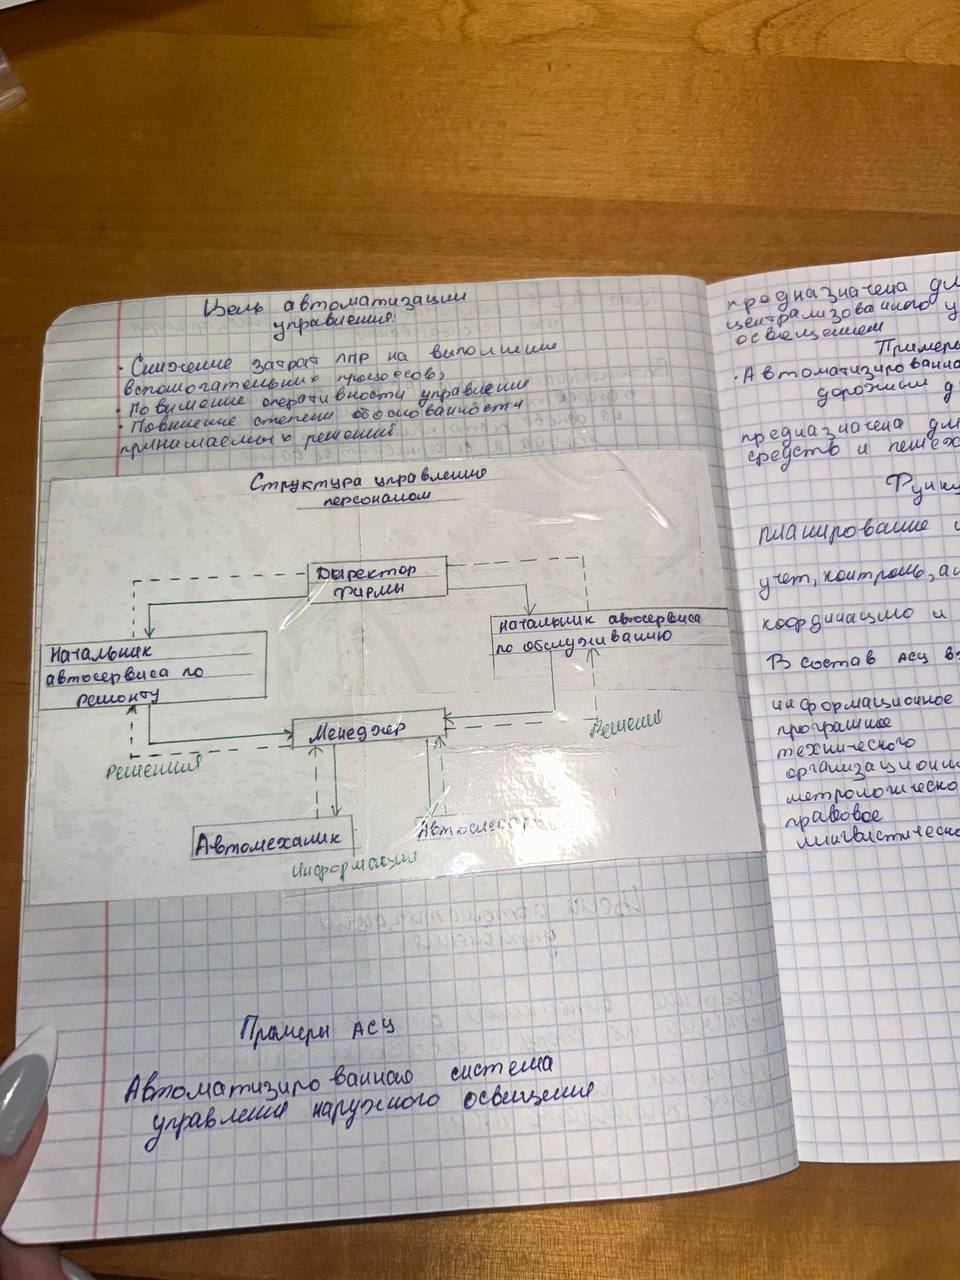 Цель автоматизации
управления:
· Снижение затрат ЛПР на выполнение
вспомогательных процессов;
· Повышение оперативности управления
· Повышение степени обоснованности
принимаемых решений
Структура управления
персоналом
Директор
фирмы
Начальник автосервиса
по обслуживанию
Начальник
автосервиса по
ремонту
Менеджер
Решения
Решения
Автомеханик
Автослесарь
Информация
Примеры АСУ
Автоматизированная система
управления наружного освещения
предназначена для
централизованного у
освещением
Примеры
· Автоматизированна
дорожным д
предназначена для
средств и пешех
Функц
планирование и
учет, контроль, ан
координацию и
В состав АСУ вх
информационное
програмное
технического
организационно
метрологическо
правовое
лингвистическо